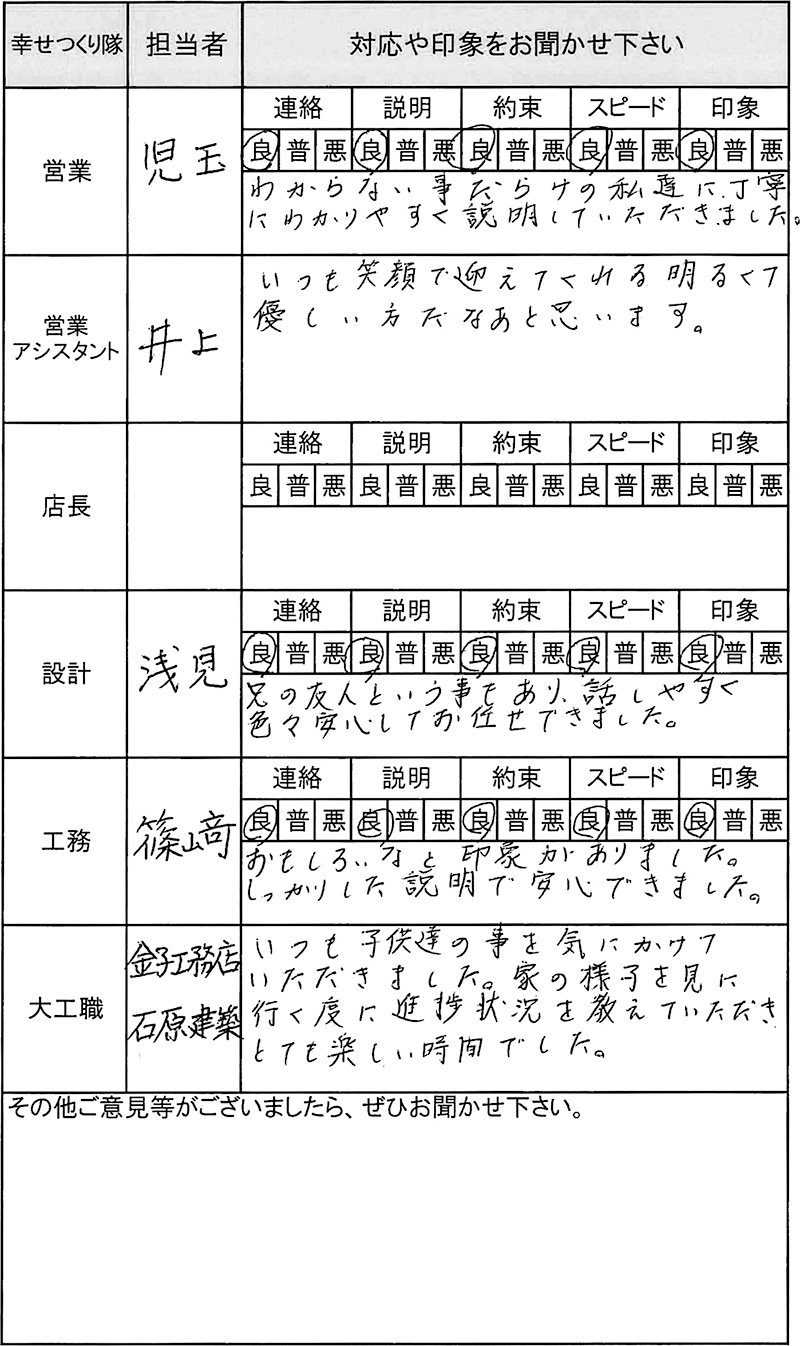 幸せつくり隊 担当者 対応や印象をお聞かせ下さい
営業 児玉
連絡 説明 約束 スピード 印象
良 普 悪 良 普 悪 良 普 悪 良 普 悪 良 普 悪
わからない事だらけの私達に、丁寧
にわかりやすく説明していただきました。
営業
アシスタント
井上
いつも笑顔で迎えてくれる明るくて
優しい方だなあと思います。
店長
連絡 説明 約束 スピード 印象
良 普 悪 良 普 悪 良 普 悪 良 普 悪 良 普 悪
設計 浅見
連絡 説明 約束 スピード 印象
良 普 悪 良 普 悪 良 普 悪 良 普 悪 良 普 悪
兄の友人という事もあり、話しやすく
色々安心してお任せできました。
工務 篠﨑
連絡 説明 約束 スピード 印象
良 普 悪 良 普 悪 良 普 悪 良 普 悪 良 普 悪
おもしろいなと印象がありました。
しっかりした説明で安心できました。
大工職
金子工務店
石原建築
いつも子供達の事を気にかけて
いただきました。家の様子を見に
行く度に進捗状況を教えていただき
とても楽しい時間でした。
その他ご意見等がございましたら、ぜひお聞かせ下さい。